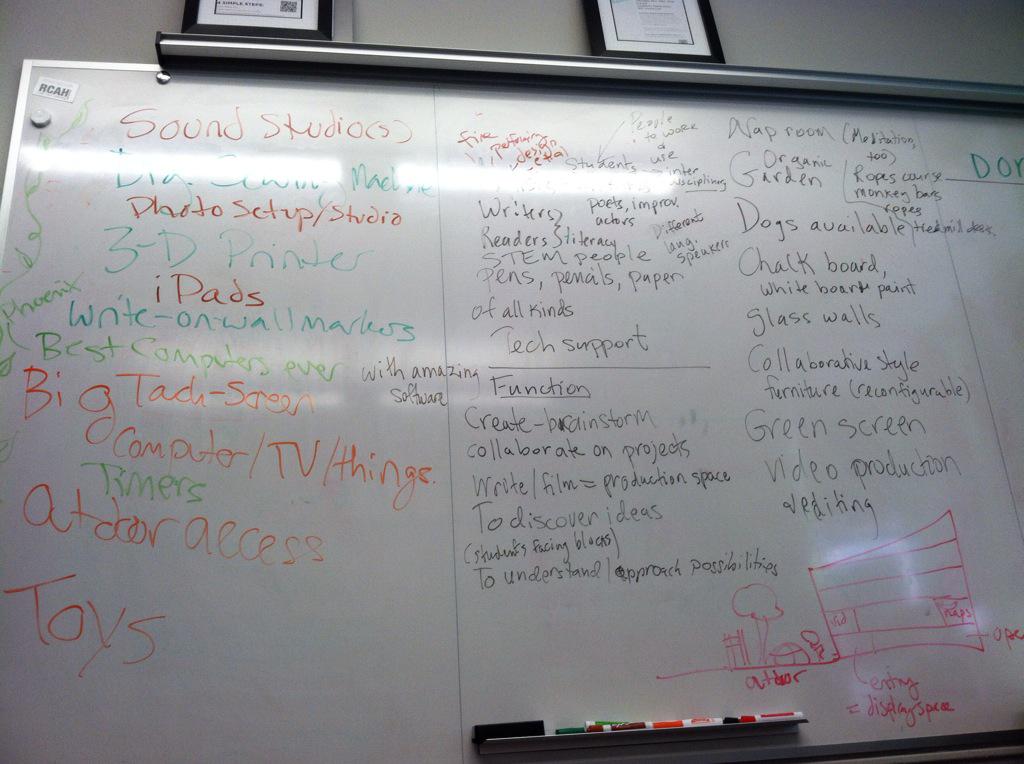 4 SIMPLE STEPS:
RCAH
Sound Studio(s)
Big Sewing Machine
Photo Setup/Studio
3-D Printer
iPads
Phoenix
Write-on-wall markers
Best Computers ever
with amazing
software
Big Tach-Screen
Computer/TV/things.
Timers
Outdoor access
Toys
fine
performing
design
etal
People
to work
&
use
Students
inter
disciplinary
Writers}
poets, improv.
actors
Readers} literacy
Different
lang.
speakers
STEM people
Pens, pencils, paper
of all kinds
Tech support
Function
Create - brainstorm
collaborate on projects
Write/film = production space
To discover ideas
(students facing blocks)
To understand/approach possibilities
Nap room (Meditation,
too)
Organic
Garden
Ropes course
monkey bars
ropes
Dogs available/treadmill desks
Chalk board,
white board paint
glass walls
Collaborative style
furniture (reconfigurable)
Green screen
Video production
& editing
DON
naps
outdoor
entry
= display space